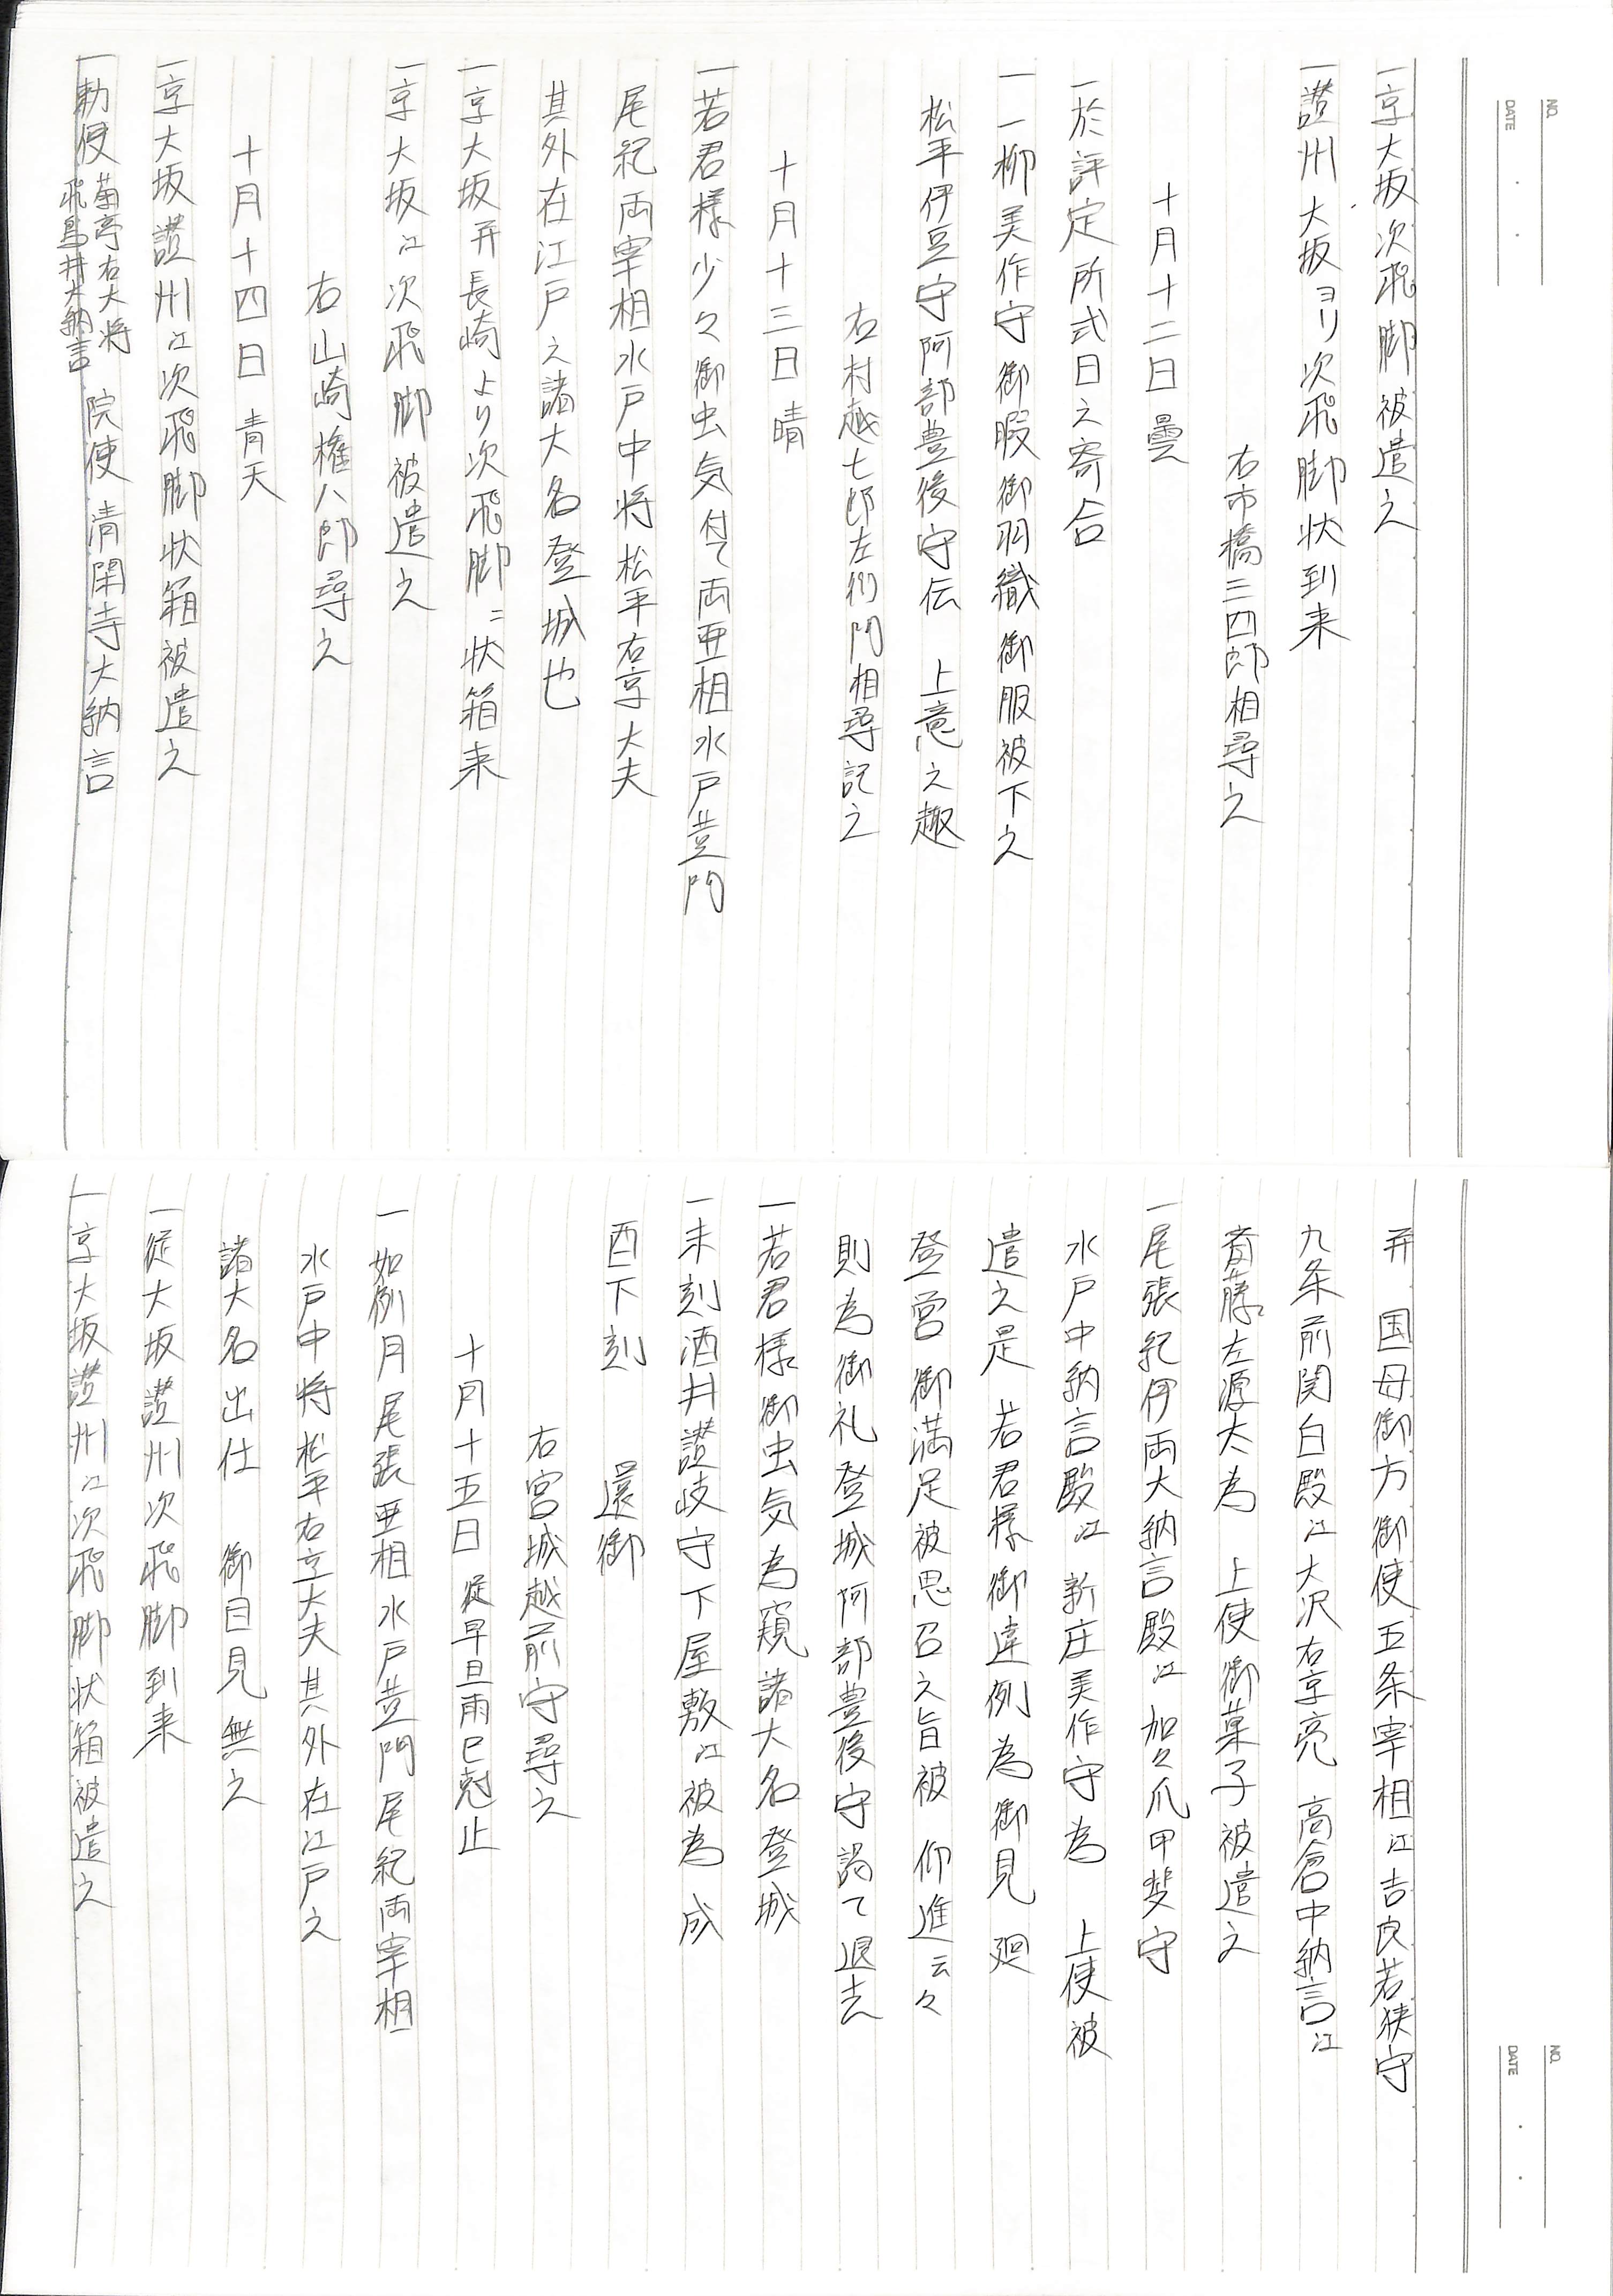 NO.
DATE
一京大坂次飛脚被遣之
一讃州大坂ヨリ次飛脚状到来
右市橋三四郎相尋之
十月十二日 曇
一於評定所式日之寄合
一一柳美作守御暇御羽織御服被下之
松平伊豆守阿部豊後守伝 上意之趣
右村越七郎左衛門相尋記之
十月十三日 晴
一若君様少々御虫気付て両亜相水戸黄門
尾紀両宰相水戸中将松平右京大夫
其外在江戸之諸大名登城也
一京大坂并長崎より次飛脚ニ状箱来
一京大坂江次飛脚被遣之
右山崎権八郎尋之
十月十四日 青天
一京大坂讃州江次飛脚状箱被遣之
一勅使 菊亭右大将 飛鳥井大納言 院使 清閑寺大納言
NO.
DATE
并 国母御方御使五条宰相江吉良若狭守
九条前関白殿江大沢右京亮 高倉中納言江
斎藤左源太為 上使御菓子被遣之
一尾張紀伊両大納言殿江加々爪甲斐守
水戸中納言殿江新庄美作守為 上使被
遣之是 若君様御違例為御見廻
登営御満足被思召之旨被 仰進云々
則為御礼登城阿部豊後守謁て退去
一若君様御虫気為窺諸大名登城
一未刻酒井讃岐守下屋敷江被為 成
酉下刻 還御
右宮城越前守尋之
十月十五日 従早旦雨巳尅止
一如例月尾張亜相水戸黄門尾紀両宰相
水戸中将松平右京大夫其外在江戸之
諸大名出仕 御目見無之
一従大坂讃州次飛脚到来
一京大坂讃州江次飛脚状箱被遣之